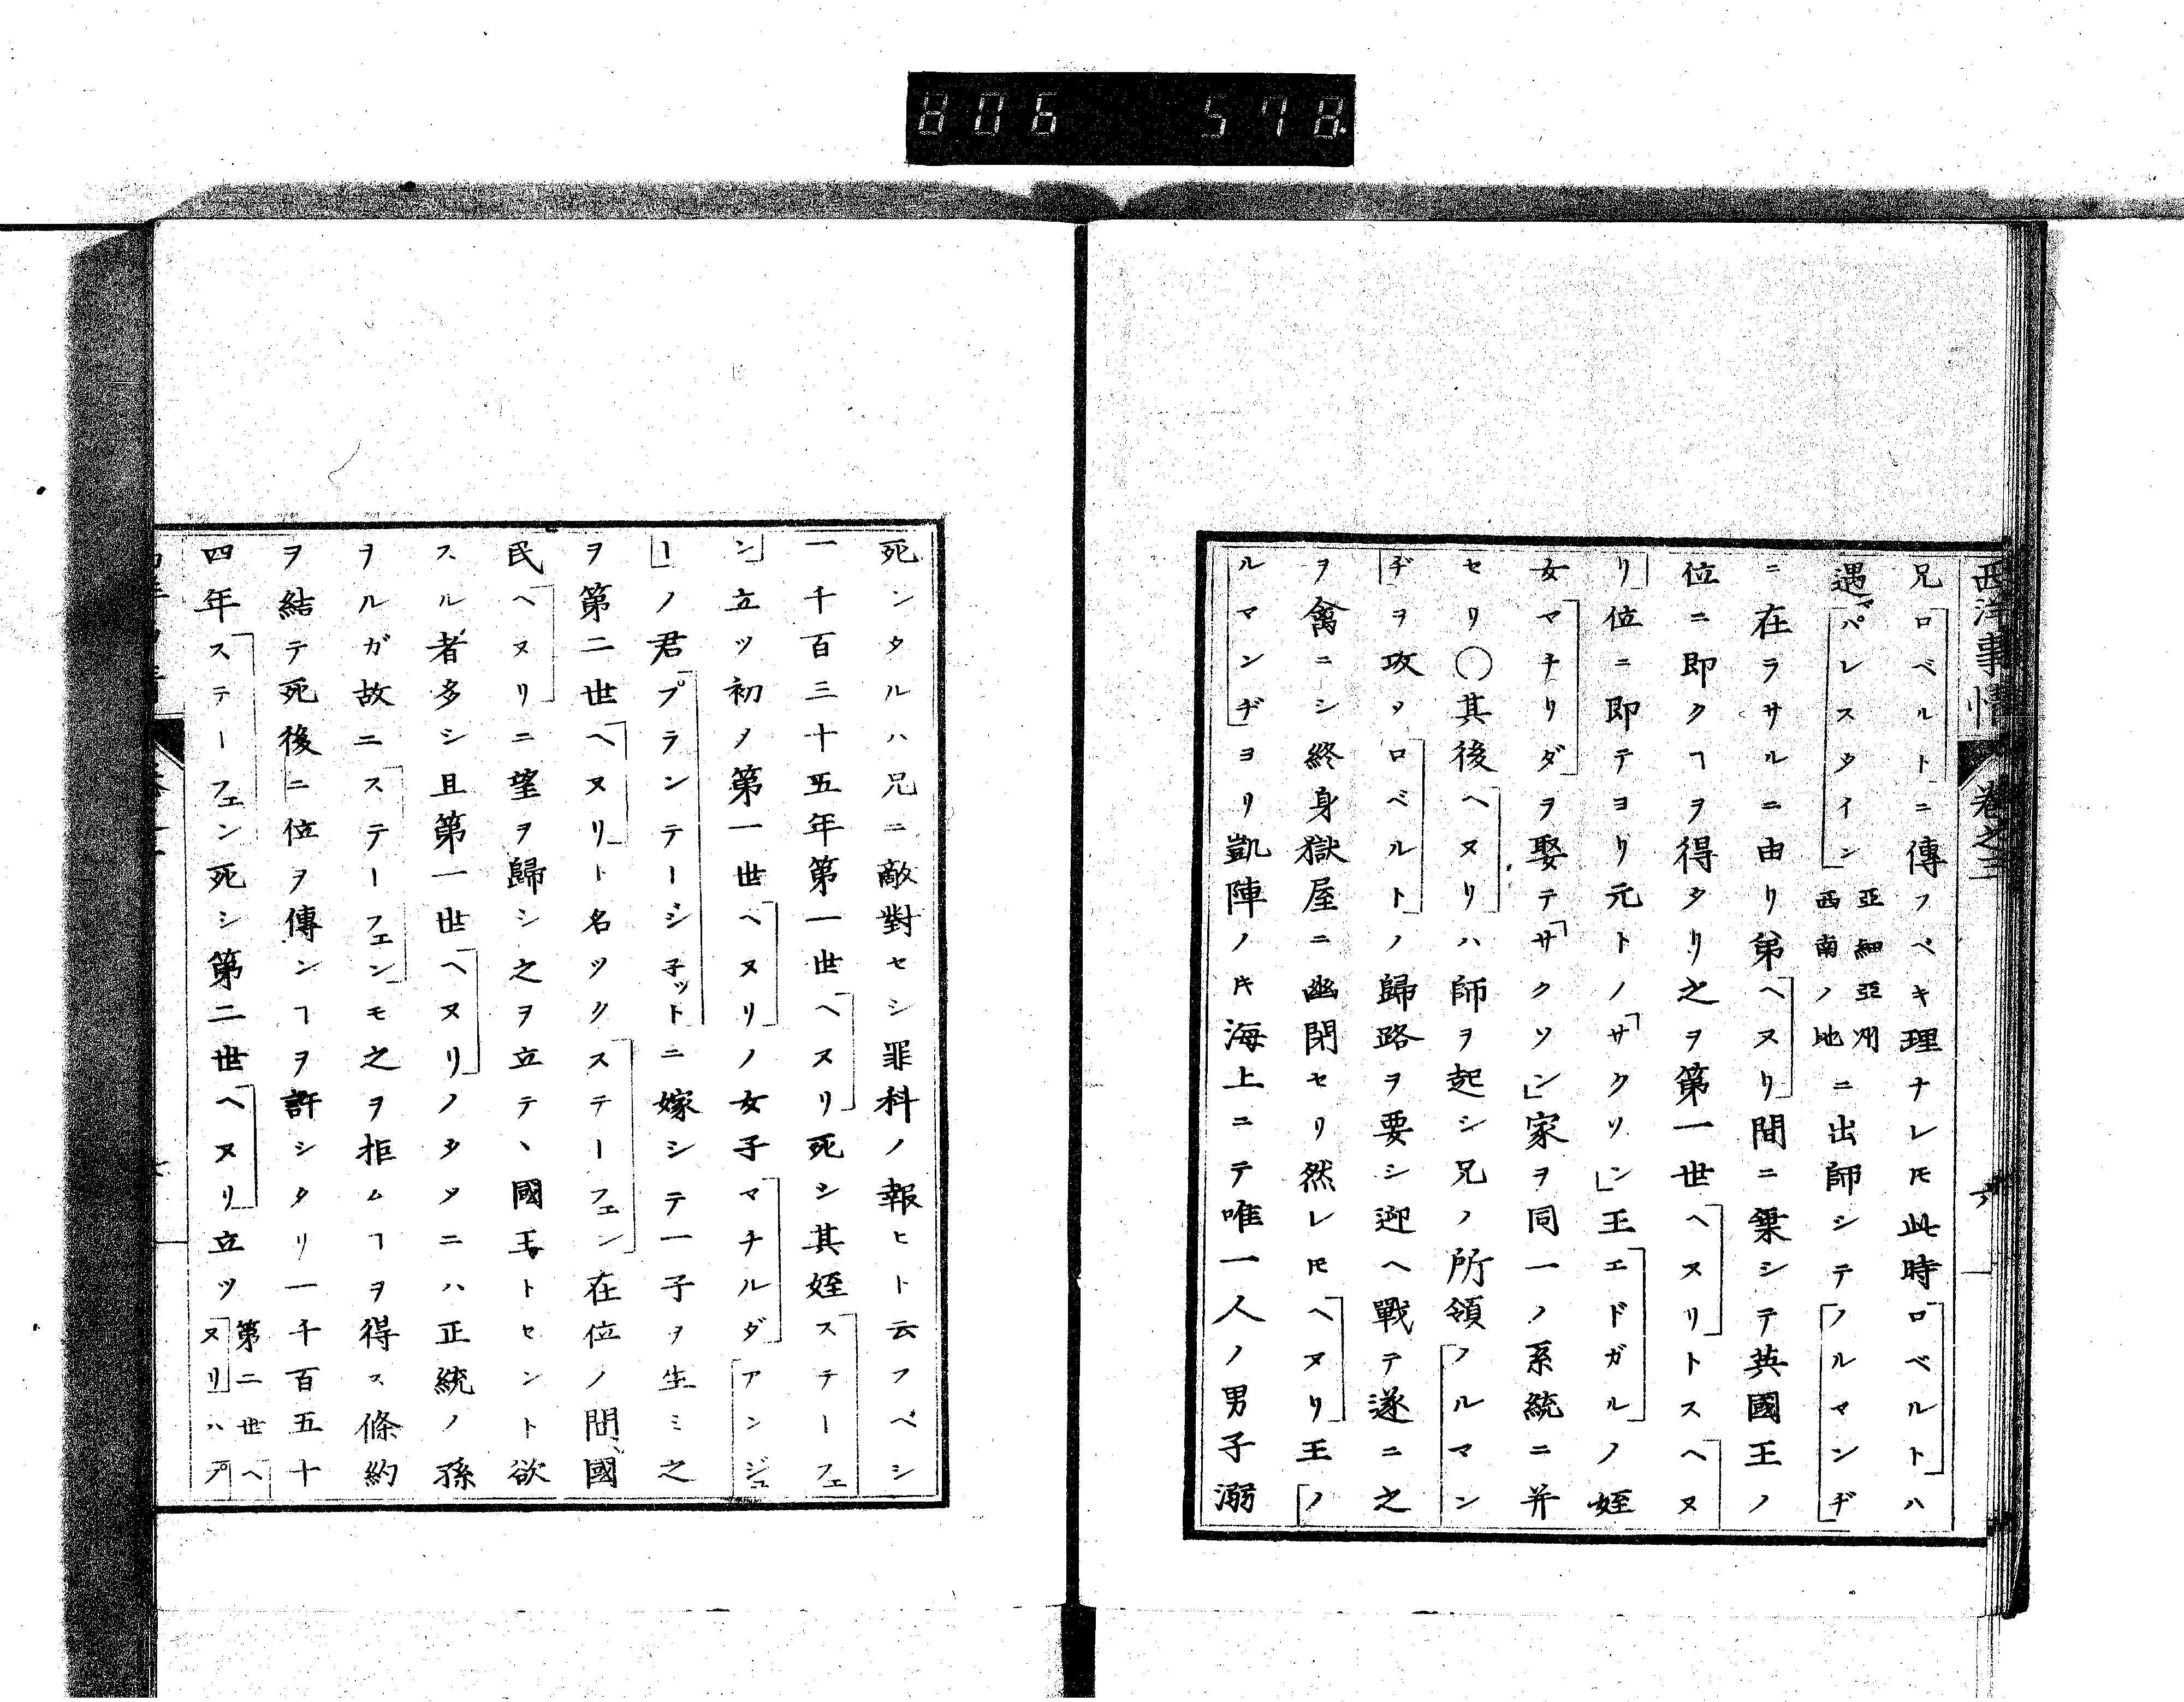 806 578.
西洋事情 卷之三
兄ロベルトニ傳フベキ理ナレ𪜈此時ロベルトハ
遇マパレスタイン亞細亞洲西南ノ地ニ出師シテノルマンヂ
ニ在ラサルニ由リ弟ヘヌリ間ニ乗シテ英國王ノ
位ニ即クヿヲ得タリ之ヲ第一世ヘヌリトスヘヌ
リ位ニ即テヨリ元トノサクソン王エドガルノ姪
女マチリダヲ娶テサクソン家ヲ同一ノ系統ニ并
セリ〇其後ヘヌリハ師ヲ起シ兄ノ所領ノルマン
ヂヲ攻メロベルトノ歸路ヲ要シ迎ヘ戰テ遂ニ之
ヲ禽ニシ終身獄屋ニ幽閉セリ然レ𪜈ヘヌリ王ノ
ルマンヂヨリ凱陣ノ𪜈海上ニテ唯一人ノ男子溺
死シタルハ兄ニ敵對セシ罪科ノ報ヒト云フベシ
一千百三十五年第一世ヘヌリ死シ其姪ステーフェ
ン立ツ初ノ第一世ヘヌリノ女子マチルダアンジュ
ーノ君プランテージ子ットニ嫁シテ一子ヲ生ミ之
ヲ第二世ヘヌリト名ツクステーフェン在位ノ間國
民ヘヌリニ望ヲ歸シ之ヲ立テ、國王トセント欲
スル者多シ且第一世ヘヌリノタメニハ正統ノ孫
ヲルガ故ニステーフェンモ之ヲ拒ムヿヲ得ス條約
ヲ結テ死後ニ位ヲ傳ンヿヲ許シタリ一千百五十
四年ステーフェン死シ第二世ヘヌリ立ツ第二世ヘヌリハプ